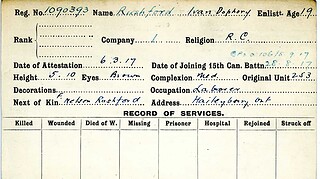 Reg. No. 1090393 Name Rushford Ivan Dephory Enlistt. Age 19
Rank Company 1 Religion R.C.
Date of Attestation 6.3.17 Date of Joining 15th Can. Battn. 28.8.17
Height 5.10 Eyes Brown Complexion Med. Original Unit 253
Decorations Occupation Laborer
Next of Kin F. Nelson Rushford Address Haileybury Ont
RECORD OF SERVICES.
Killed Wounded Died of W. Missing Prisoner Hospital Rejoined Struck off